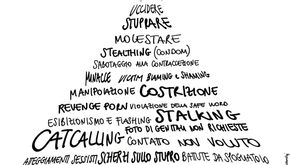 UCCIDERE
STUPRARE
MOLESTARE
STEALTHING (CONDOM)
SABOTAGGIO ALLA CONTRACCEZIONE
MINACCE VICTIM BLAMING & SHAMING
MANIPOLAZIONE COSTRIZIONE
REVENGE PORN VIOLAZIONE DELLA SAFE WORD
ESIBIZIONISMO E FLASHING STALKING
FOTO DI GENITALI NON RICHIESTE
CATCALLING CONTATTO NON VOLUTO
ATEGGIAMENTI SESSISTI SCHERZI SULLO STUPRO BATTUTE DA SPOGLIATOIO